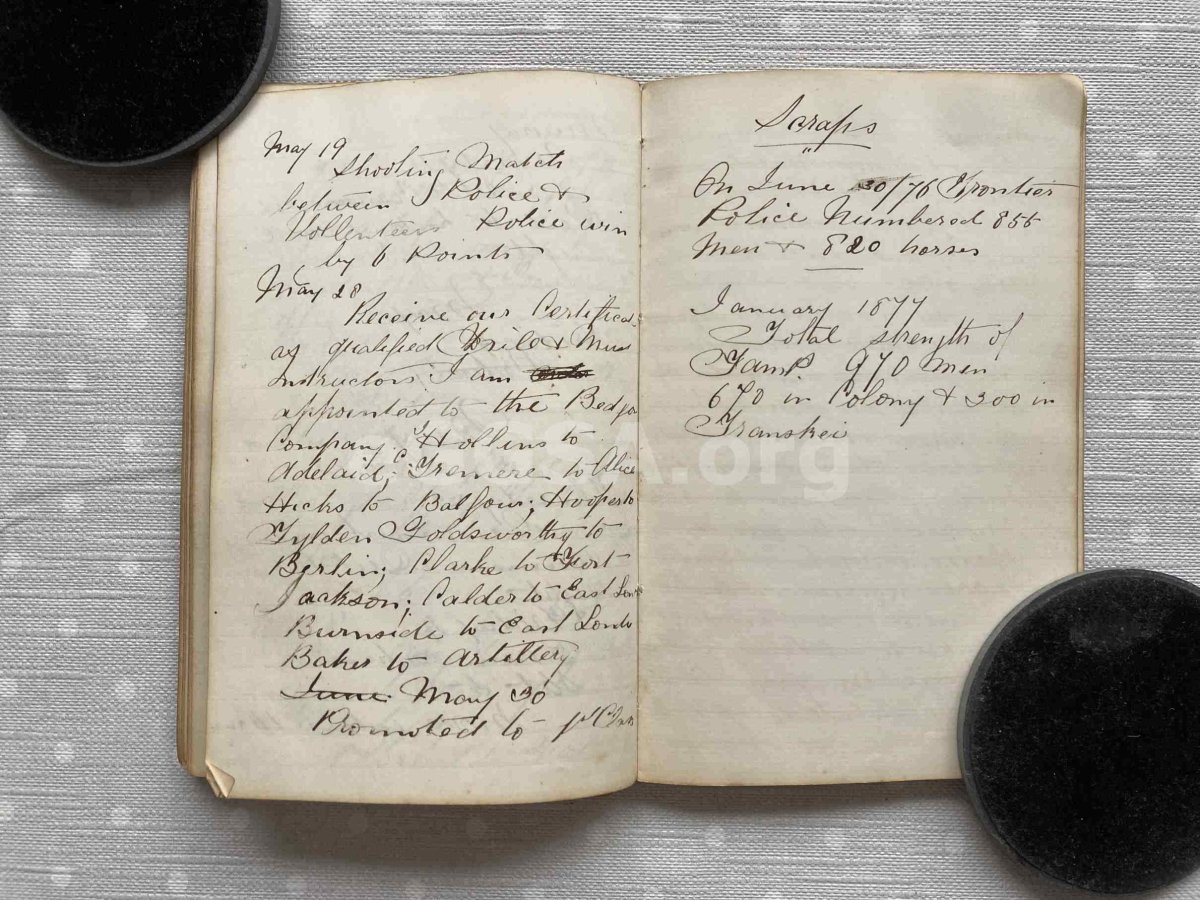 May 19
Shooting Match
between Police &
Vollenteers Police win
by 6 Points
May 28
Receive our Certificat
as qualified Drill & Mus
Instructors I am
appointed to the Bedfo
Company; Hollins to
Adelaid; Tremere to Alice
Hicks to Balfour; Hooper to
Tylden Goldsworthy to
Berlin; Clarke to Fort
Jackson; Calder to East Lon
Burnside to East Londo
Baker to Artillery
June May 30
Promoted to
Scraps
On June 30/76 Frontier
Police Numbered 856
Men & 820 horses
January 1877
Total strength of
970 men
670 in Colony & 300 in
Transkei
SA.org